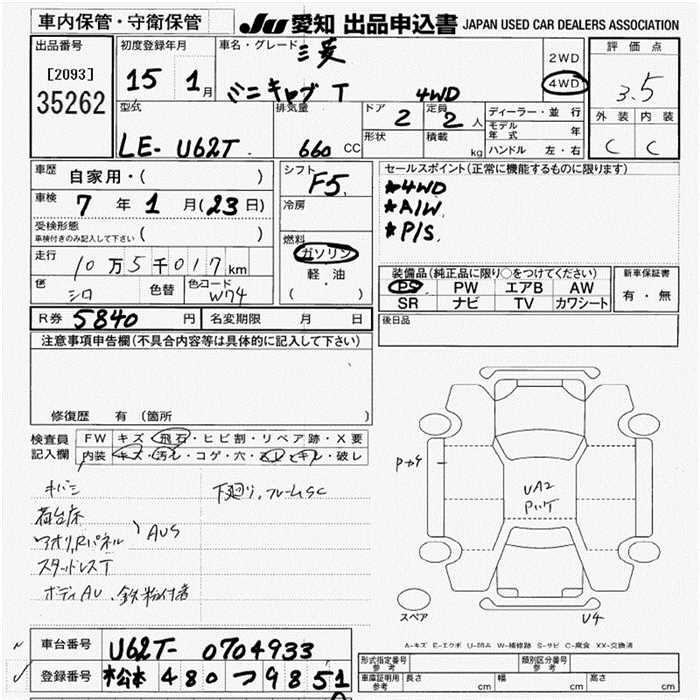 車内保管・守衛保管
JU 愛知 出品申込書 JAPAN USED CAR DEALERS ASSOCIATION
出品番号
[2093]
35262
初度登録年月
15 1月
車名・グレード
三菱
ミニキャブ T 4WD
2WD
4WD
評価点
3.5
外装 内装
C C
型式
LE- U62T
排気量
660 CC
ドア
2
定員
2 人
形状
積載
kg
ディーラー・並行
モデル年式 年
ハンドル 左・右
車歴
自家用・( )
車検
7年 1月(23日)
受検形態
車検付きのみ記入して下さい ( )
走行
10万5千017km
色
シロ
色替
色コード
W74
シフト
F5
冷房
燃料
ガソリン
軽・油
( ・ )
セールスポイント(正常に機能するものに限ります)
★4WD
★A/W
★P/S
装備品(純正品に限り○をつけてください)
PS PW エアB AW
SR ナビ TV カワシート
新車保証書
有・無
R券 5840円
名変期限 月 日
後日品
注意事項申告欄(不具合内容等は具体的に記入して下さい)
修復歴 有(箇所 )
検査員記入欄
FW キズ・飛石・ヒビ割・リペア跡・X要
内装 キズ・汚レ・コゲ・穴・スレ・キレ・破レ
キバミ
荷台床
アオリ,Rパネル AUS
スタッドレスT
ボディAU、鉄粉付着
下廻り、フレームSC
UA2
スペア
U4
A-キズ E-エクボ U-凹み W-補修跡 S-サビ C-腐食 XX-交換済
車台番号 U62T- 0704933
登録番号 松本 480 つ 9851
形式指定番号 参考
類別区分番号 参考
車庫証明用 参考 長さ cm 幅 cm 高さ cm